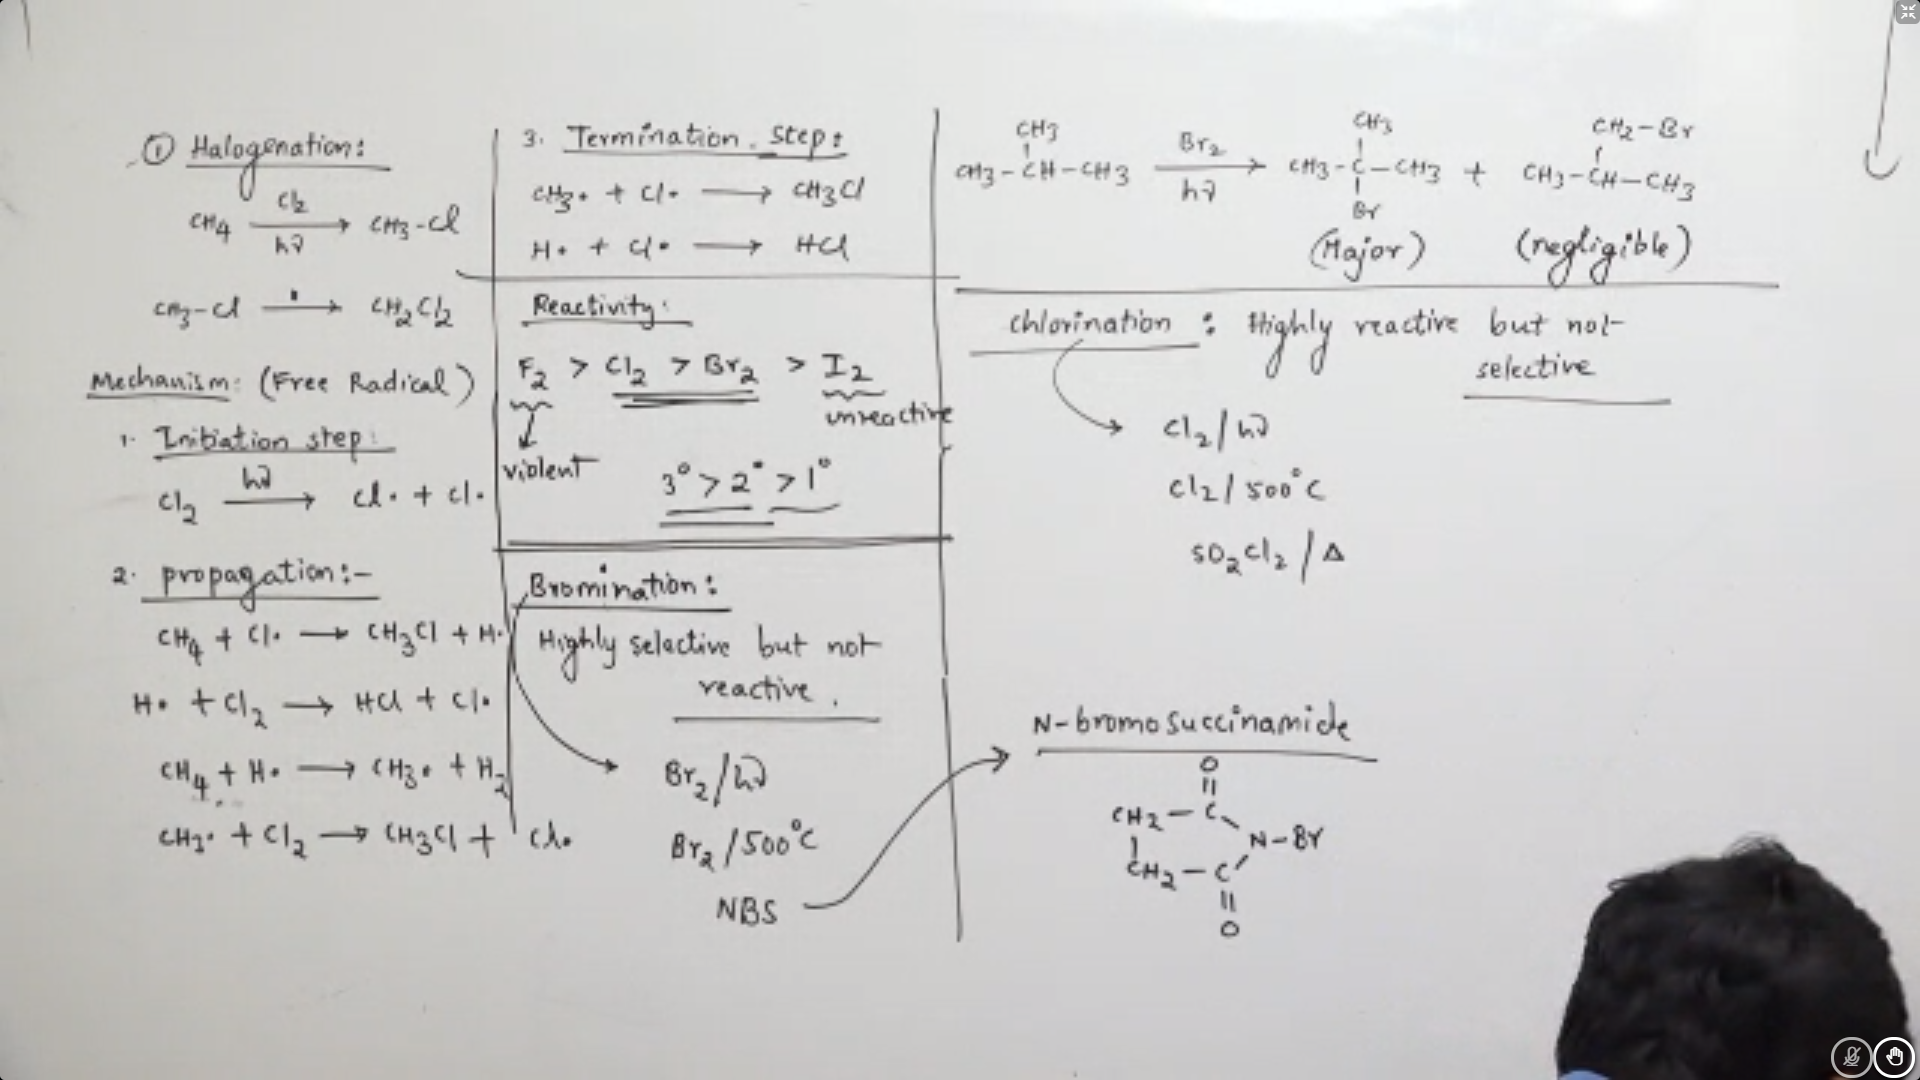 ① Halogenation:
CH4 Cl2 hν → CH3-Cl
CH3-Cl → CH2Cl2
Mechanism: (Free Radical)
1. Initiation step:
Cl2 hν → Cl• + Cl•
2. propagation:-
CH4 + Cl• → CH3Cl + H•
H• + Cl2 → HCl + Cl•
CH4 + H• → CH3• + H2
CH3• + Cl2 → CH3Cl + Cl•
3. Termination step:
CH3• + Cl• → CH3Cl
H• + Cl• → HCl
Reactivity:
F2 > Cl2 > Br2 > I2
unreactive
violent
3° > 2° > 1°
Bromination:
Highly selective but not
reactive.
Br2/hν
Br2/500°C
NBS
CH3 CH3 CH2-Br
CH3-CH-CH3 Br2 hν → CH3-C-CH3 + CH3-CH-CH3
Br
(Major) (negligible)
chlorination : Highly reactive but not
selective
Cl2/hν
Cl2/500°C
SO2Cl2/Δ
N-bromosuccinamide
O
CH2-C
N-Br
CH2-C
O